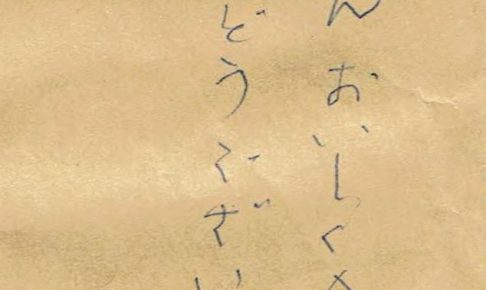 んおいしく

どうござい